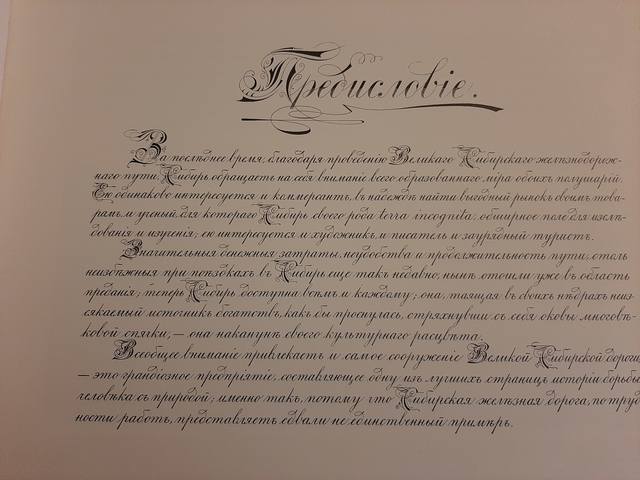 Предисловіе.
За послѣднее время, благодаря проведенію Великаго Сибирскаго желѣзнодорож-
наго пути, Сибирь обращаетъ на себя вниманіе всего образованнаго міра обоихъ полушарій.
Ею одинаково интересуется и коммерсантъ, въ надеждѣ найти выгодный рынокъ своимъ това-
рамъ, и ученый, для котораго Сибирь своего рода terra incognita, обширное поле для изслѣ-
дованія и изученія; ею интересуется и художникъ, и писатель и заурядный туристъ.
Значительныя денежныя затраты, неудобства и продолжительность пути, столь
неизбѣжныя при поѣздкахъ въ Сибирь еще такъ недавно, нынѣ отошли уже въ область
преданія; теперь Сибирь доступна всѣмъ и каждому; она, таящая въ своихъ нѣдрахъ неиз-
сякаемый источникъ богатствъ, какъ бы проснулась, стряхнувши съ себя оковы многовѣ-
ковой спячки, — она наканунѣ своего культурнаго расцвѣта.
Всеобщее вниманіе привлекаетъ и самое сооруженіе Великой Сибирской дороги
— это грандіозное предпріятіе, составляющее одну изъ лучшихъ страницъ исторіи борьбы
человѣка съ природой; именно такъ, потому что Сибирская желѣзная дорога, по труд-
ности работъ, представляетъ едвали не единственный примѣръ.